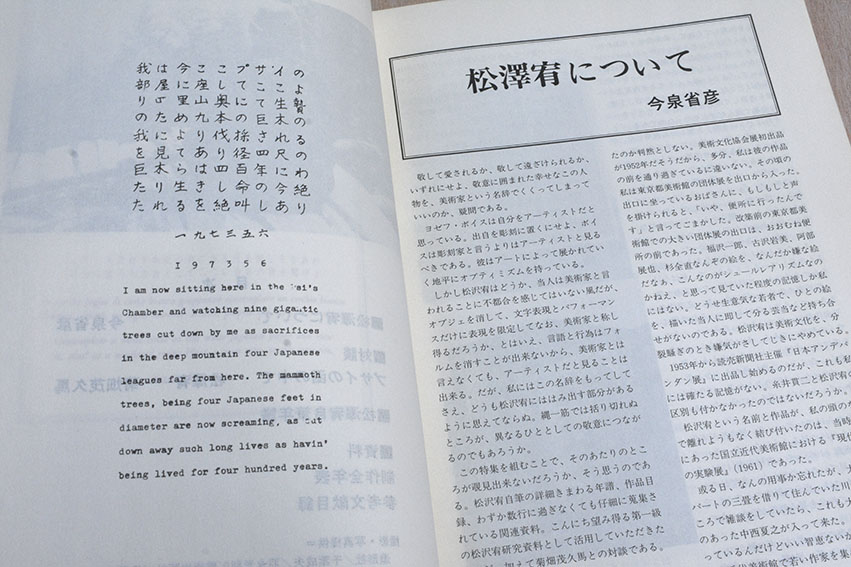 我は今ここプサイの
部屋に座してここよ
り四里山奥にて生贄
のため九本の巨木の
我により伐採される
を見てあり径四尺の
巨木らは四百年にわ
たり生きし命の今絶
たれるを絶叫しあり
一九七三五六
197356
I am now sitting here in the 's
Chamber and watching nine gigantic
trees cut down by me as sacrifices
in the deep mountain four Japanese
leagues far from here. The mammoth
trees, being four Japanese feet in
diameter are now screaming, as cut
down away such long lives as havin'
being lived for four hundred years.
松澤宥について
今泉省彦
敬して愛されるか、敬して遠ざけられるか、
いずれにせよ、敬意に囲まれた幸せなこの人
物を、美術家という名辞でくくってしまって
いいのか、疑問である。
ヨゼフ・ボイスは自分をアーティストだと
思っている。出自を彫刻に置くにせよ、ボイ
スは彫刻家と言うよりはアーティストと見る
べきである。彼はアートによって展かれてい
く地平にオプティミズムを持っている。
しかし松沢宥はどうか、当人は美術家と言
われることに不都合を感じてはいない風だが、
オブジェを消して、文字表現とパフォーマン
スだけに表現を限定してなお、美術家と称し
得るだろうか。とはいえ、言語と行為はフォ
ルムを消すことが出来ないから、美術家とは
言えなくても、アーティストだと見ることは
出来る。だが、私にはこの名辞をもってして
さえ、どうも松沢宥にははみ出す部分がある
ように思えてならぬ。縄一筋では括り切れぬ
ところが、異なるひととしての敬意につなが
るのでもあろうか。
この特集を組むことで、そのあたりのとこ
ろが覗見出来ないだろうか、そう思うのであ
る。松沢宥自筆の詳細きまわる年譜、作品目
録、わずか数行に過ぎなくても仔細に蒐集さ
れている関連資料。こんにち望み得る第一級
の松沢宥研究資料として活用していただきた
加えて菊畑茂久馬との対談である。
たのか判然としない。美術文化協会展初出品
が1952年だそうだから、多分、私は彼の作品
の前を通り過ぎているに違いない。その頃の
私は東京都美術館の団体展を出口から入った。
出口に坐っているおばさんに、もしもしと声
を掛けられると、「いや、便所に行ったんで
す」と言ってごまかした。改築前の東京都美
術館での大きい団体展の出口は、おおむね便
所の前であった。福沢一郎、古沢岩美、阿部
展也、杉全直なんぞの絵を、なんだか嫌な絵
だなぁ、こんなのがシュールレアリズムなの
かねえ、と思って見ていた程度の記憶しか私
にはない。どうせ生意気な若者で、ひとの絵
を、描いた当人に即して分る雲当など持ち合
せがないのである。松沢宥は美術文化を、分
裂騒ぎのとき嫌気がさしてじきにやめている。
1953年から読売新聞社主催『日本アンデパ
ンダン展』に出品し始めるのだが、これも私
には確たる記憶がない。糸井貫二と松沢宥の
区別も付かなかったのではないだろうか。
松沢宥という名前と作品が、私の頭のな
で離れようもなく結び付いたのは、当時
にあった国立近代美術館における『現代
の実験展』(1961)であった。
或る日、なんの用事か忘れたが、
パートの三畳を借りて住んでいた川
ころで雑談をしていたら、これも
のあった中西夏之が入って来た。
っているんだけどいい智恵ないか
近代美術館で若い作家を集